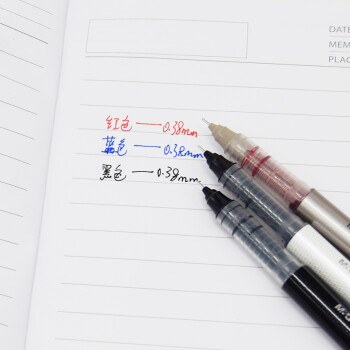 DATE
MEM
PLAC
红色——0.38mm
蓝色——0.38mm
黑色——0.38mm